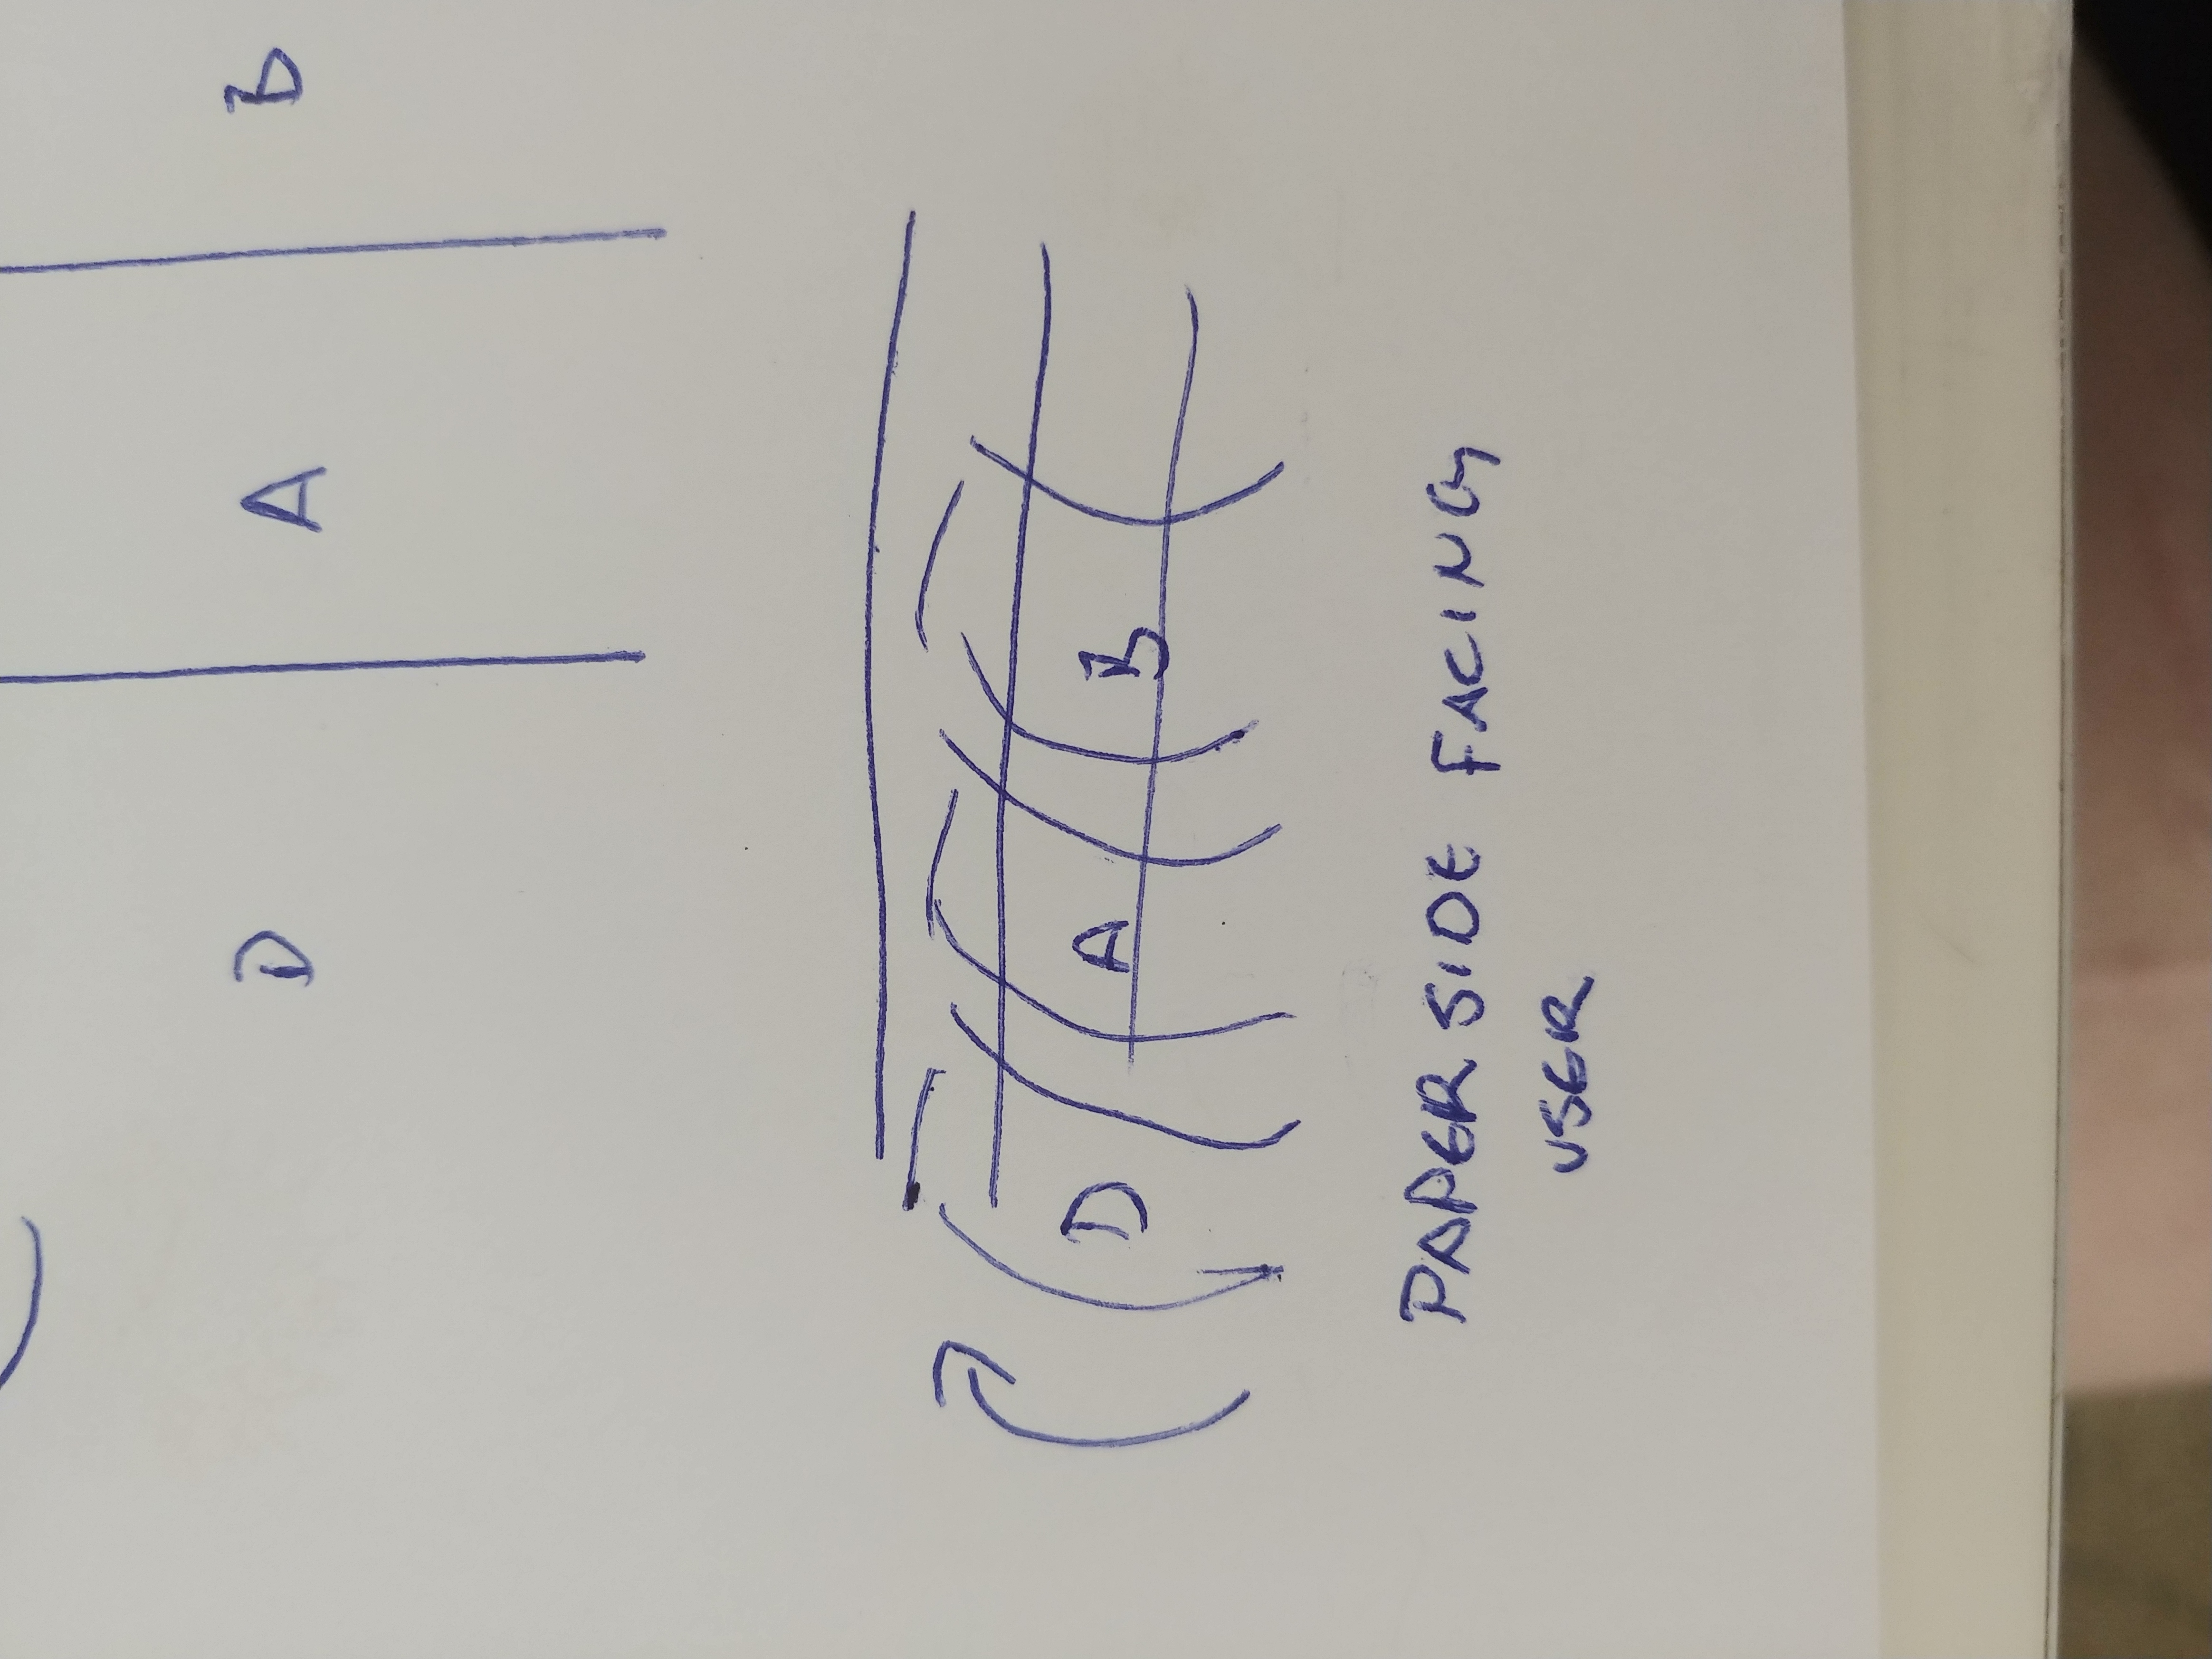 D A B
D A B
PAPER SIDE FACING
USER